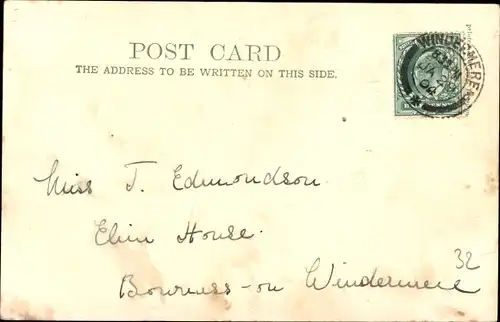 POST CARD
THE ADDRESS TO BE WRITTEN ON THIS SIDE.
WINDERMERE
04
Miss J. Edmondson
Elim House.
Bowness-on Windermere
32